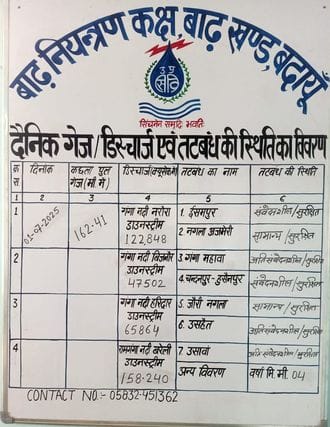 बाढ़ नियन्त्रण कक्ष, बाढ़ खण्ड, बदायूँ
सिंचनेन समृद्धि भवति
दैनिक गेज/डिस्चार्ज एवं तटबंध की स्थिति का विवरण
क्र सं दिनांक कछला पुल गेज (मी. में) डिस्चार्ज (क्यूसेक में) तटबंध का नाम तटबंध की स्थिति
1 2 3 4 5 6
1 01-07-2025 162.41 गंगा नदी नरोरा डाउनस्ट्रीम 122,848 1. ईसमपुर संवेदनशील/सुरक्षित
2. नगला अजमेरी सामान्य/सुरक्षित
2 गंगा नदी बिजनौर डाउनस्ट्रीम 47502 3. गंगा महावा अतिसंवेदनशील/सुरक्षित
4. चन्दनपुर-हुसैनपुर संवेदनशील/सुरक्षित
3 गंगा नदी हरिद्वार डाउनस्ट्रीम 65864 5. जौरी नगला सामान्य/सुरक्षित
6. उसहैत अतिसंवेदनशील/सुरक्षित
4 रामगंगा नदी बरेली डाउनस्ट्रीम 158.240 7. उसावां अतिसंवेदनशील/सुरक्षित
अन्य विवरण वर्षा मि.मी. 04
CONTACT NO.:- 05832-451362